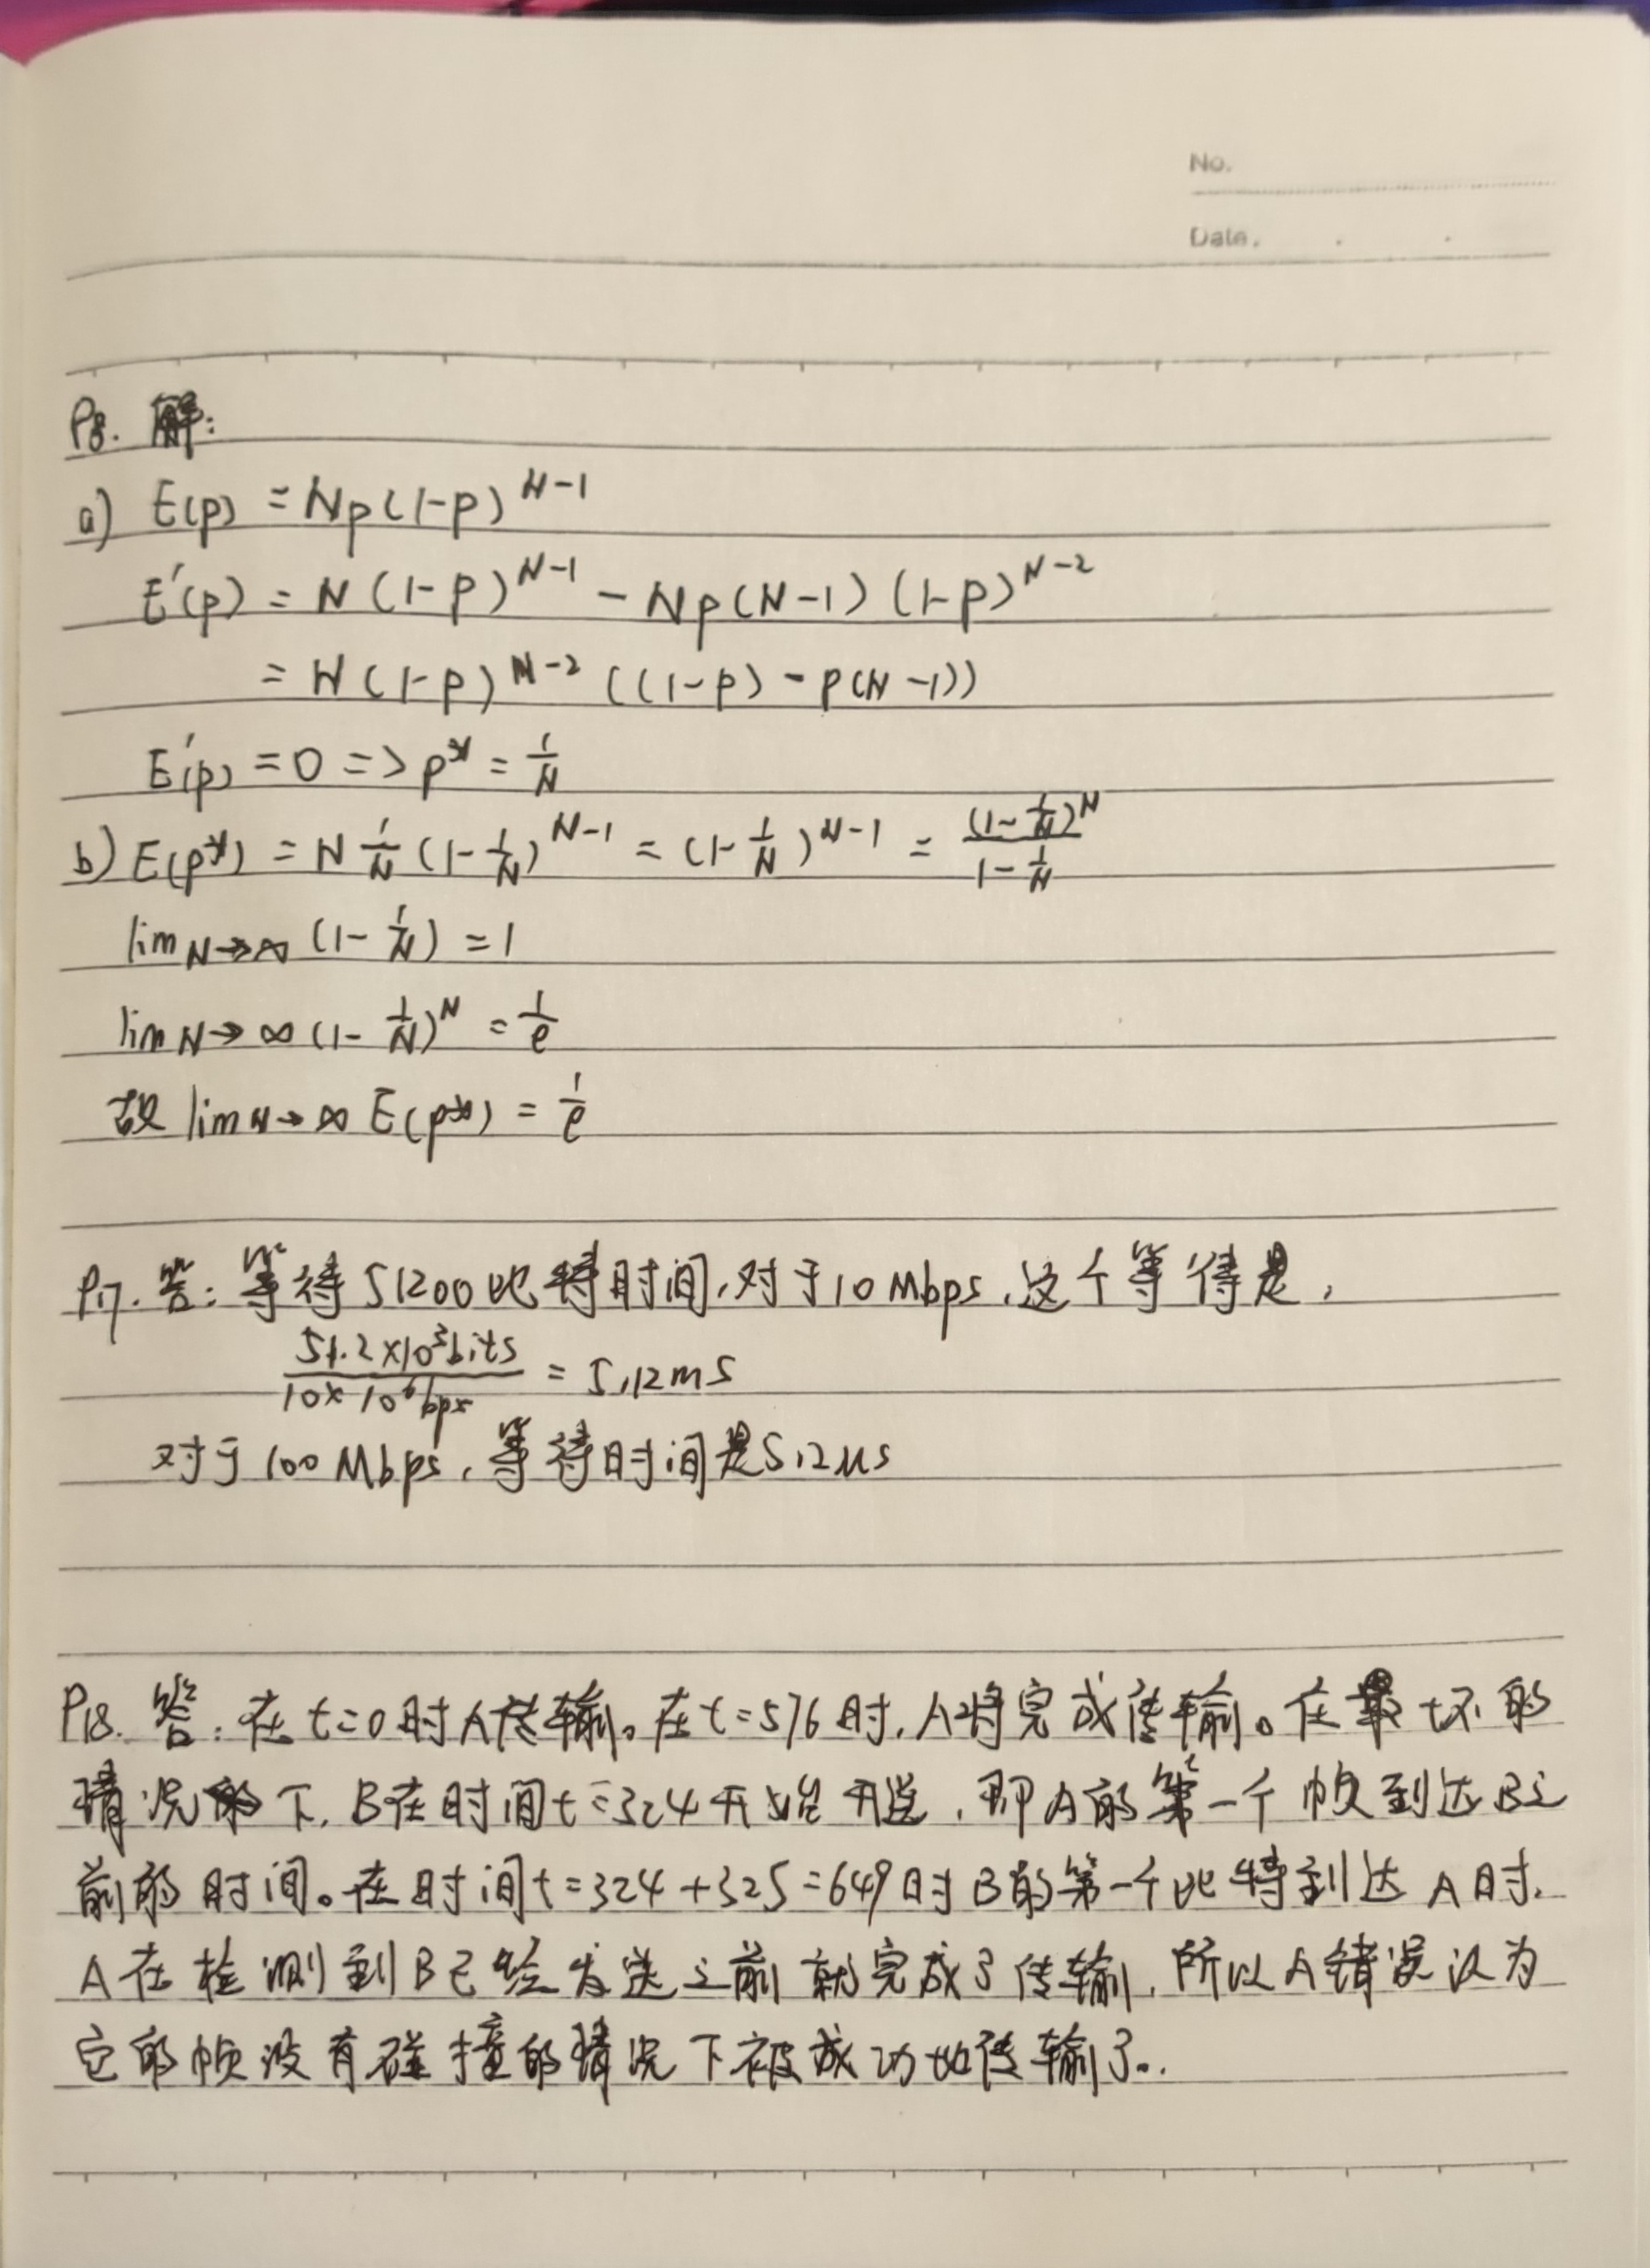 No.
Date.
P8. 解:
a) E(p) = Np(1-p)^{N-1}
E'(p) = N(1-p)^{N-1} - Np(N-1)(1-p)^{N-2}
= N(1-p)^{N-2}((1-p)-p(N-1))
E'(p) = 0 => p* = 1/N
b) E(p*) = N 1/N (1-1/N)^{N-1} = (1-1/N)^{N-1} = (1-1/N)^N / 1-1/N
lim N→∞ (1-1/N) = 1
lim N→∞ (1-1/N)^N = 1/e
故 lim N→∞ E(p*) = 1/e
P17. 答: 等待51200比特时间,对于10Mbps,这个等待是,
51.2×10^3 bits / 10×10^6 bps = 5.12ms
对于100Mbps,等待时间是5.12μs
P18. 答: 在t=0时A传输。在t=576时,A将完成传输。在最坏的
情况的下,B在时间t=324开始, 即A的第一个帧到达B之
前的时间。在时间t=324+325=649时B的第一个比特到达A时,
A在检测到B已经发送之前就完成了传输,所以A错误认为
它的帧没有碰撞的情况下被成功地传输了..